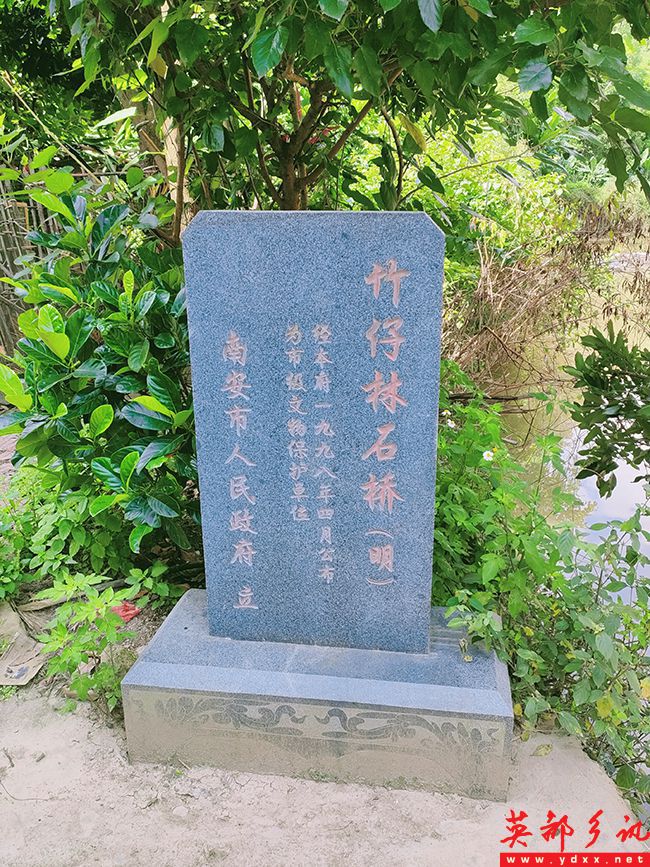 竹仔林石桥（明）
经本府一九九八年四月公布
为市级文物保护单位
南安市人民政府 立
英都乡讯
www.ydxx.net